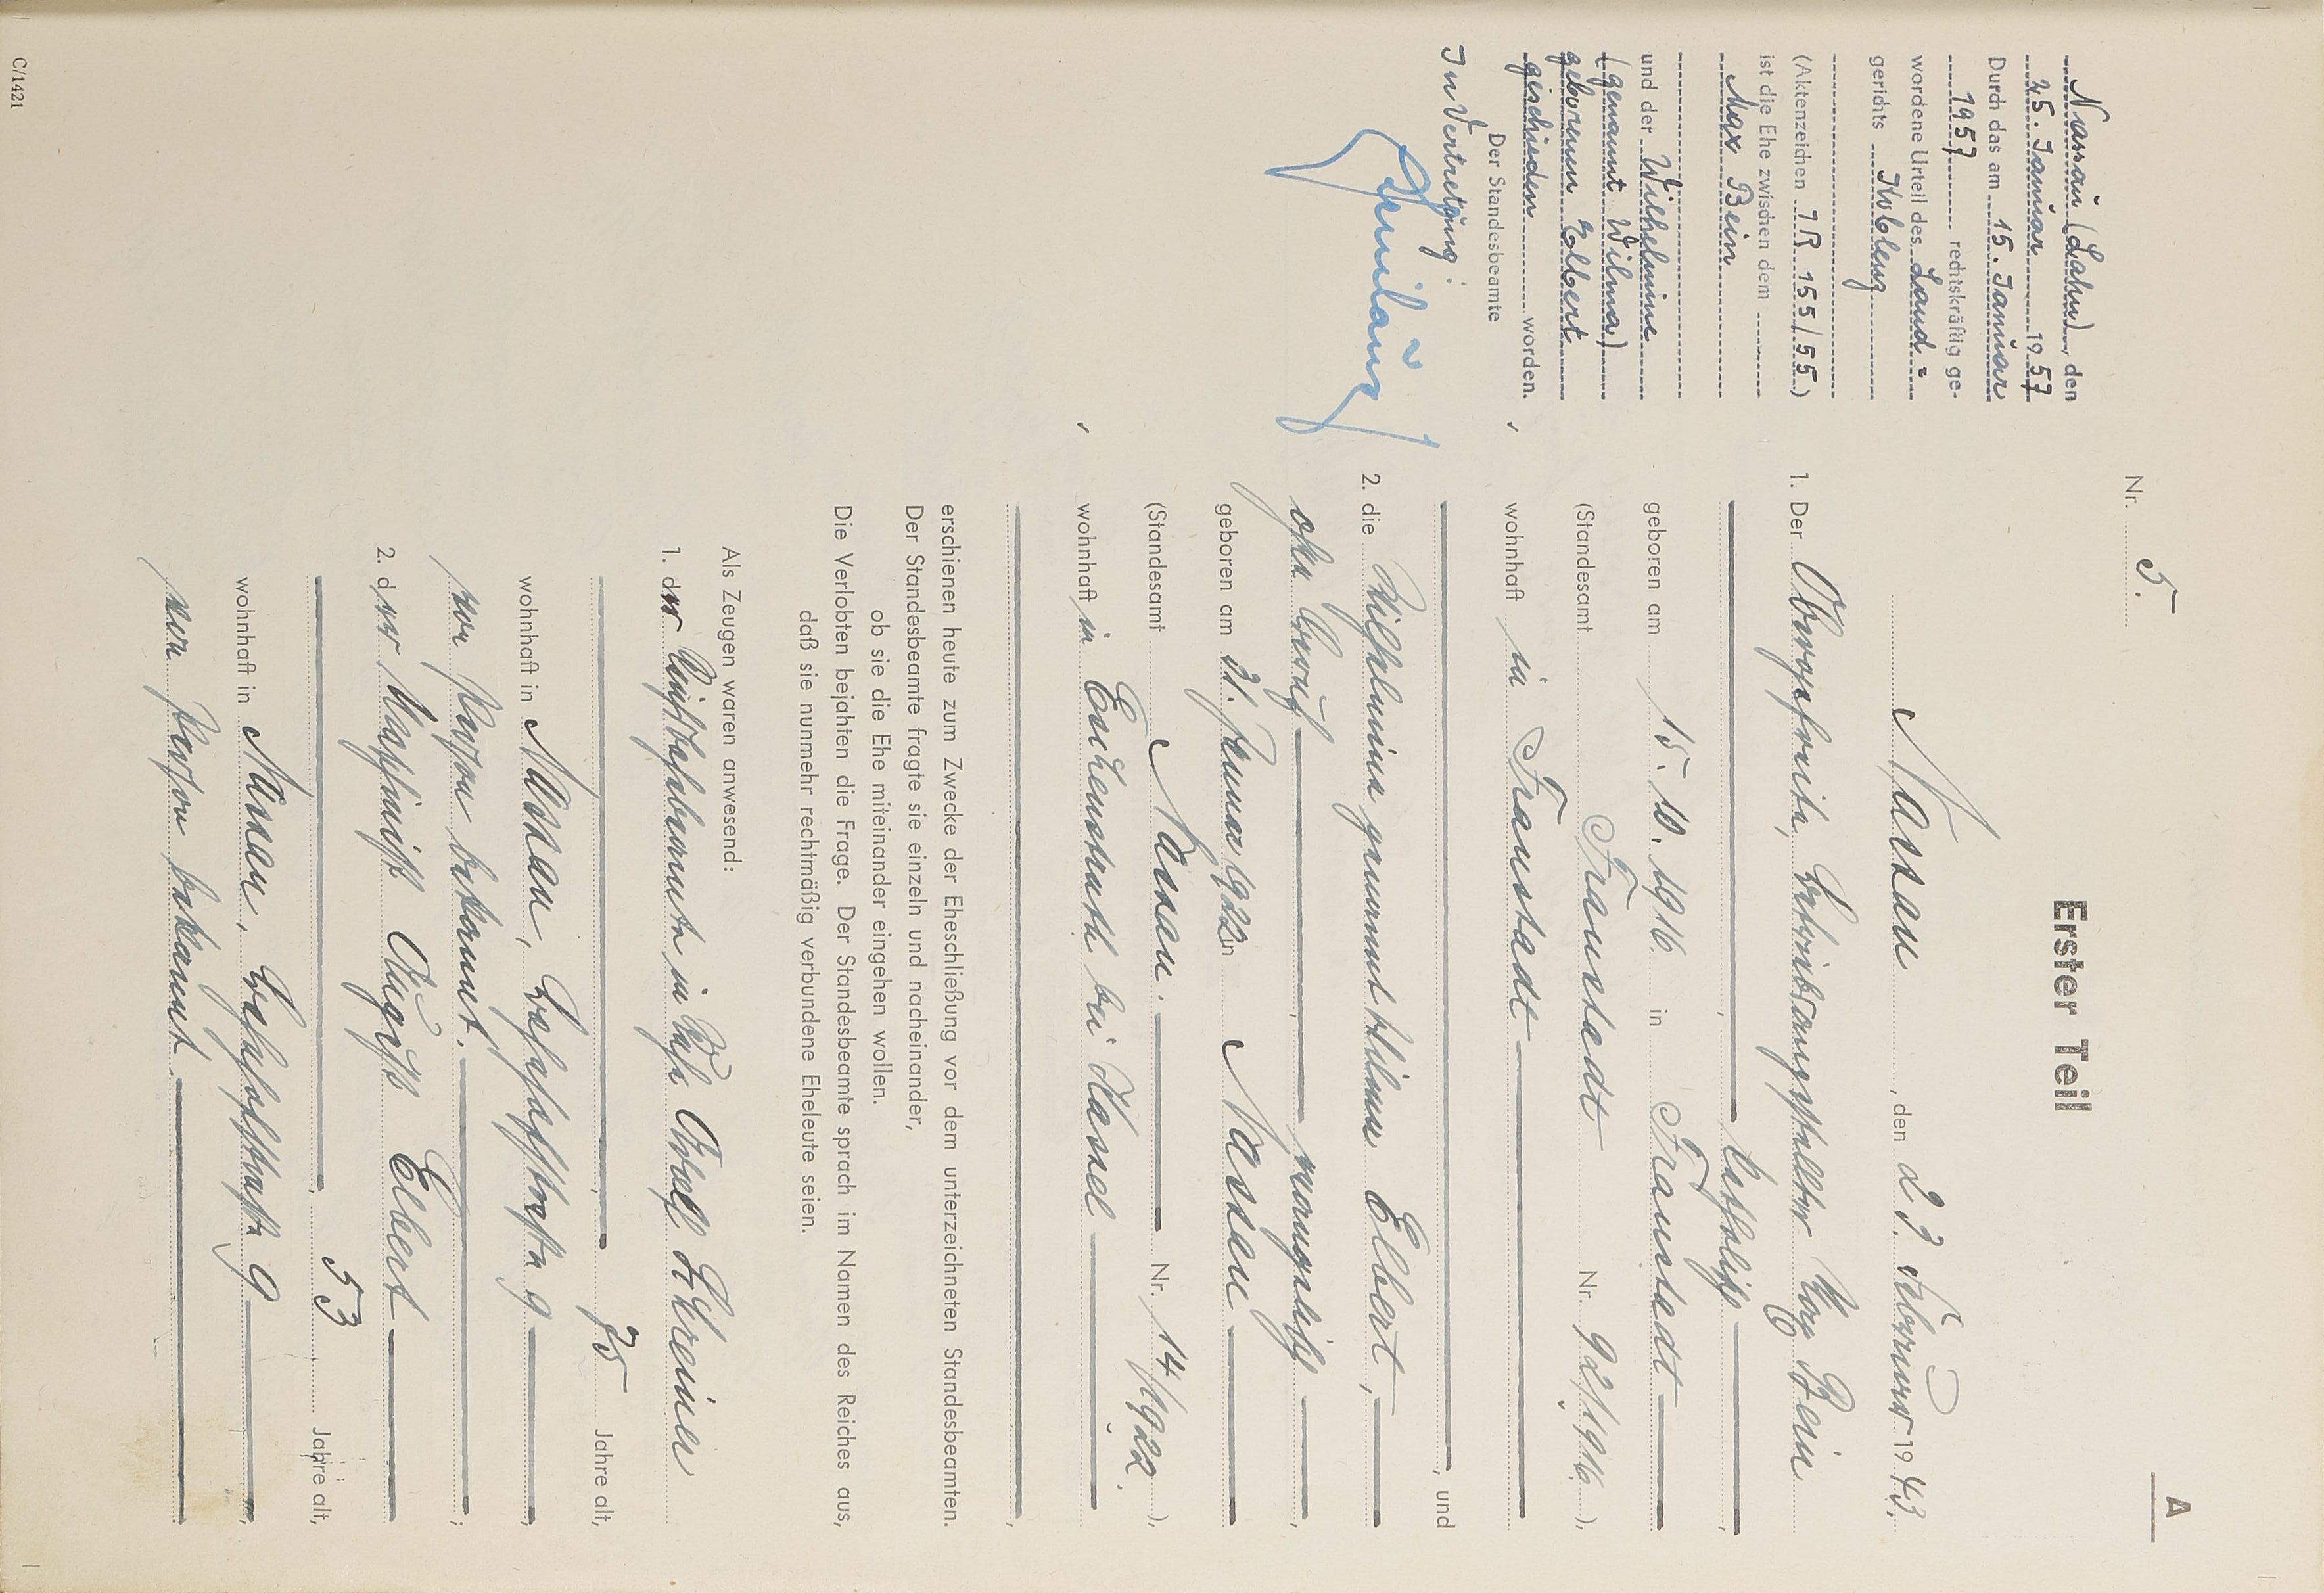 A
Nr. 5.
Erster Teil
Nassau, den 23. Februar 1943.
1. Der Obergefreite, Max Bein
katholisch,
geboren am 15. 10. 1916. in Fraustadt
(Standesamt Fraustadt Nr. 92/1916.),
wohnhaft in Fraustadt
, und
2. die Wilhelmine genannt Wilma Elbert,
ohne Beruf, evangelisch,
geboren am 31. Januar 1922 in Nassau
(Standesamt Nassau. Nr. 14/1922.),
wohnhaft in Eschenstruth bei Kassel
,
erschienen heute zum Zwecke der Eheschließung vor dem unterzeichneten Standesbeamten.
Der Standesbeamte fragte sie einzeln und nacheinander,
ob sie die Ehe miteinander eingehen wollen.
Die Verlobten bejahten die Frage. Der Standesbeamte sprach im Namen des Reiches aus,
daß sie nunmehr rechtmäßig verbundene Eheleute seien.
Als Zeugen waren anwesend:
1. der in Ruhe
, 75 Jahre alt,
wohnhaft in Nassau, 9,
von Person bekannt.;
2. der August Elbert
, 53 Jahre alt,
wohnhaft in Nassau, 9,
von Person bekannt.
Nassau (Lahn), den
25. Januar 1957
Durch das am 15. Januar
1957 rechtskräftig ge-
wordene Urteil des Land=
gerichts Koblenz
(Aktenzeichen 7 R 155/55)
ist die Ehe zwischen dem
Max Bein
und der Wilhelmine
(genannt Wilma)
geborenen Elbert
geschieden worden.
Der Standesbeamte
In Vertretung:
C/1421